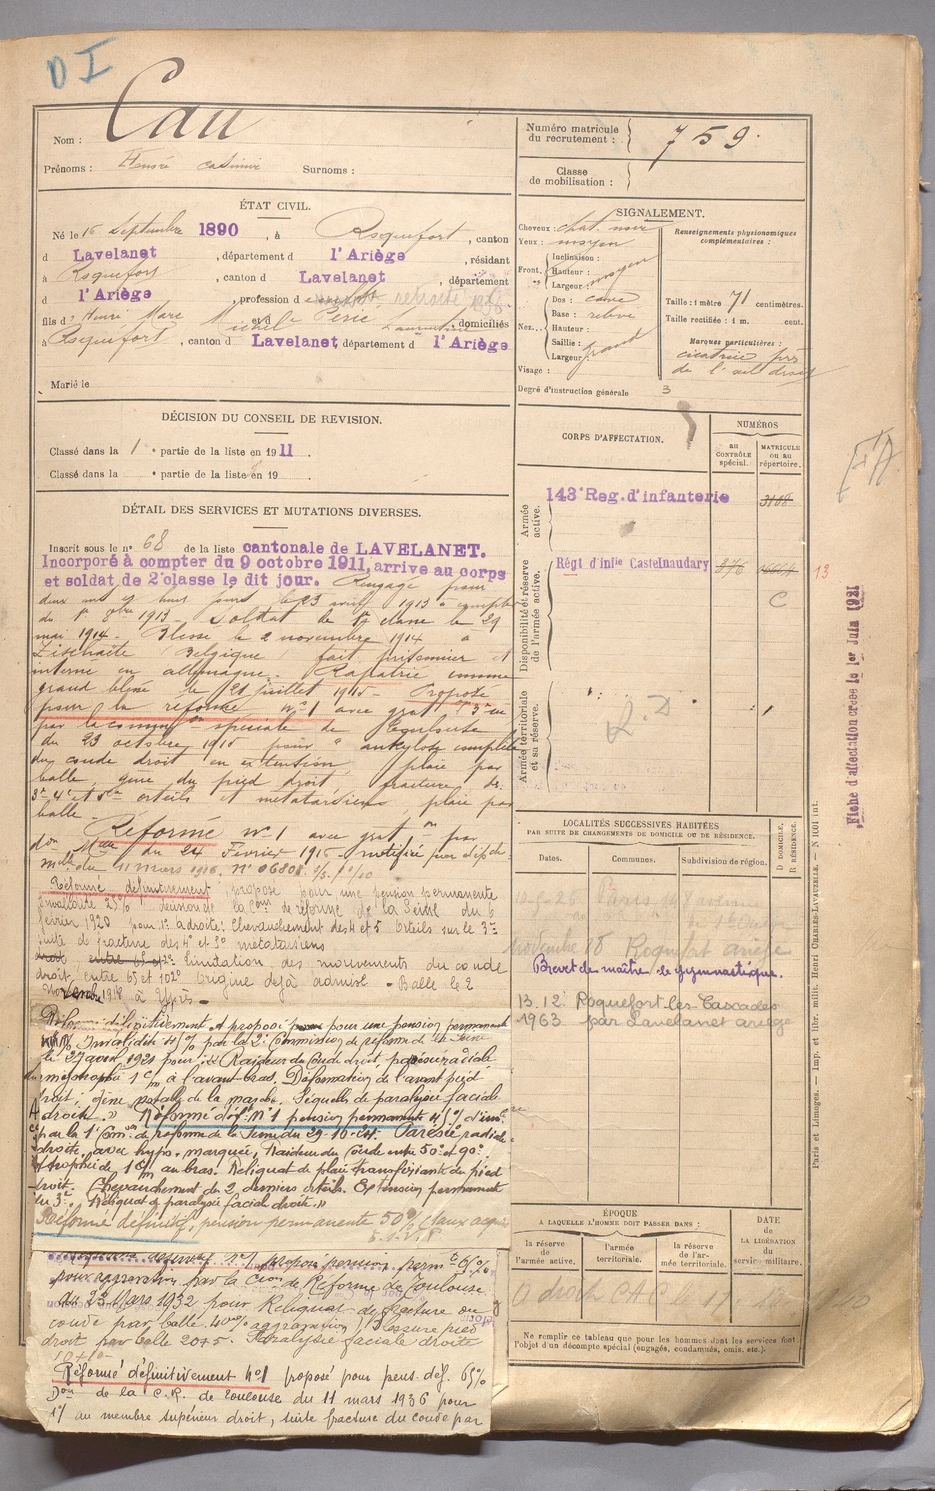 D I
Nom : Cau
Prénoms : Henri Casimir Surnoms :
Numéro matricule du recrutement : 759
Classe de mobilisation :
ÉTAT CIVIL.
Né le 16 Septembre 1890, à Roquefort, canton
d Lavelanet, département d l'Ariège, résidant
à Roquefort, canton d Lavelanet, département
d l'Ariège, profession d retraité
fils de Henri Marc Michel et d e Peric Laurentine, domiciliés
à Roquefort, canton d Lavelanet, département d l'Ariège
Marié le
DÉCISION DU CONSEIL DE REVISION.
Classé dans la 1e partie de la liste en 1911
Classé dans la e partie de la liste en 19
DÉTAIL DES SERVICES ET MUTATIONS DIVERSES.
Inscrit sous le n° 68 de la liste cantonale de LAVELANET.
Incorporé à compter du 9 octobre 1911, arrive au corps
et soldat de 2e classe le dit jour. Rengagé pour
deux ans jours le 23 avril 1913 à compter
du 1er 8bre 1913 - Soldat de 1ère classe le 29
mai 1914 - Blessé le 2 novembre 1914 à
Belgique, fait prisonnier et
interné en allemagne. Rapatrié comme
grand blessé le 21 juillet 1915 - Proposé
pour la réforme n° 1 avec grat on
par la comm on spéciale de Toulouse
du 23 octobre 1915 pour " ankylose complète
du coude droit en extension, plaie par
balle, gêne du pied droit, fracture des
3e 4e et 5e orteils et métatarsiens, plaie par
balle -
Réformé n° 1 avec grat on par
d on Mlle du 24 Février 1916 - notifiée par dépêche
mlle du 11 mars 1916. N° 06808
Réformé définitivement, proposé pour une pension permanente
Invalidité 25% décision de la Com de réforme de la Seine du 6
février 1920 pour 1° à droite: Chevauchement des 4 et 5 orteils sur le 3e
suite de fracture des 4e et 5e métatariens
2° Limitation des mouvements du coude
droit entre 65 et 102° Origine déjà admise - Balle le 2
Novembre 1914 à Ypres -
Réformé définitivement et proposé pour une pension permanente
Invalidité 41% par la 2e Commission de réforme de la Seine
le 27 avril 1921 pour : " Raideur du Coude droit, parésie radiale
atrophie 1 cm à l'avant-bras. Déformation de l'avant pied
droit, gêne de la marche. Séquelle de paralysie faciale
droite. » Réformé déf. N° 1 pension permanente 41% d'inv
par la 1e Com on de réforme de la Seine du 29-10-24. Parésie radiale
droite, avec hypo. marquée, Raideur du Coude entre 50° et 90°.
Atrophie de 1 cm au bras. Reliquat de plaie transfixiante du pied
droit. Chevauchement des 2 derniers orteils. Extension permanente
du 3e. Reliquat de paralysie faciale droite.»
Réformé définitif, pension permanente 50%
définitif n° 1 proposé pension perm te 65%
pour aggravation par la C ion de Réforme de Toulouse
du 23 Mars 1932 pour Reliquat de fracture du
coude par balle 40% aggravation, blessure pied
droit par balle 20+5 Paralysie faciale droite
10+10
Réformé définitivement n° 1 proposé pour pens. déf. 65%
D on de la C.R. de Toulouse du 11 mars 1936 pour
1°/ au membre supérieur droit, suite fracture du coude par
SIGNALEMENT.
Cheveux : chat. noir
Yeux : moyen
Front. Inclinaison :
Hauteur : moyen
Largeur :
Nez. Dos : cave
Base : relevé
Hauteur :
Saillie : grand
Largeur :
Visage :
Renseignements physionomiques complémentaires :
Taille : 1 mètre 71 centimètres.
Taille rectifiée : 1 m. cent.
Marques particulières :
cicatrice près
de l'œil droit
Degré d'instruction générale 3
CORPS D'AFFECTATION.
NUMÉROS
au CONTRÔLE spécial.
MATRICULE ou au répertoire.
Armée active.
143e Reg. d'infanterie 3108
Disponibilité et réserve de l'armée active.
Régt d'infie Castelnaudary 876 13
C
Armée territoriale et sa réserve.
R.D
Fiche d'affectation créée le 1er Juin 1921
LOCALITÉS SUCCESSIVES HABITÉES
PAR SUITE DE CHANGEMENTS DE DOMICILE OU DE RÉSIDENCE.
Dates. Communes. Subdivision de région. D DOMICILE, R RÉSIDENCE.
Paris avenue
de St Ouen
novembre Roquefort ariège
Brevet de maître de gymnastique.
13.12 Roquefort-les-Cascades
1963 par Lavelanet ariège
ÉPOQUE
A LAQUELLE L'HOMME DOIT PASSER DANS :
la réserve de l'armée active.
l'armée territoriale.
la réserve de l'armée territoriale.
DATE de la LIBÉRATION du service militaire.
A droit C A C le 17
Ne remplir ce tableau que pour les hommes dont les services font l'objet d'un décompte spécial (engagés, condamnés, omis, etc.).
Paris et Limoges. — Imp. et libr. milit. Henri CHARLES-LAVAUZELLE. — N 1001 int.